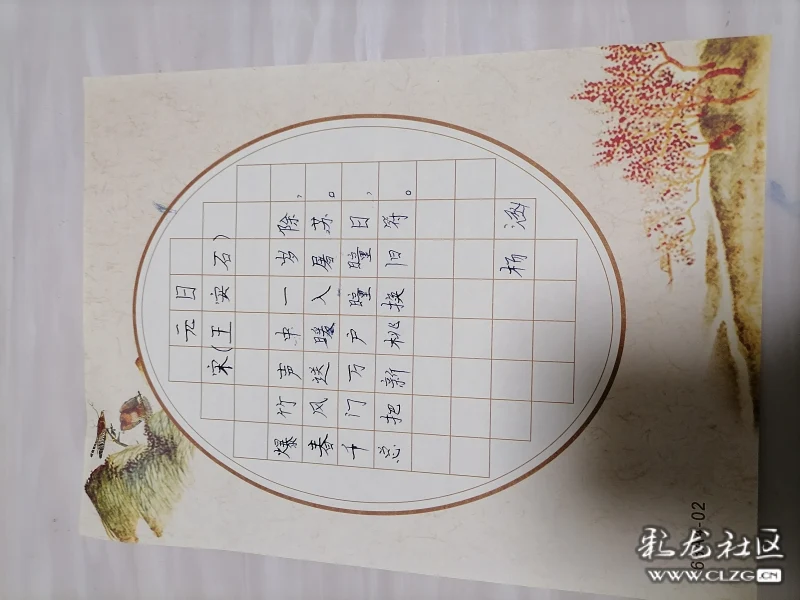 元日
宋(王安石)
爆竹声中一岁除，
春风送暖入屠苏。
千门万户瞳瞳日，
总把新桃换旧符。
杨涵
-02
彩龙社区
WWW.CLZG.CN